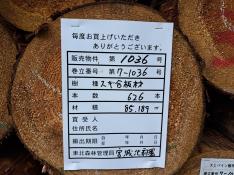 毎度お買上げいただき
ありがとうございます。
販売物件 第 1036 号
巻立番号 第 7-1036 号
樹種 スギ合板材
本数 626 本
材積 85.189 m³
買受人
住所氏名
自 年 月 日
搬出期限
至 年 月 日
東北森林管理局 宮城北部署